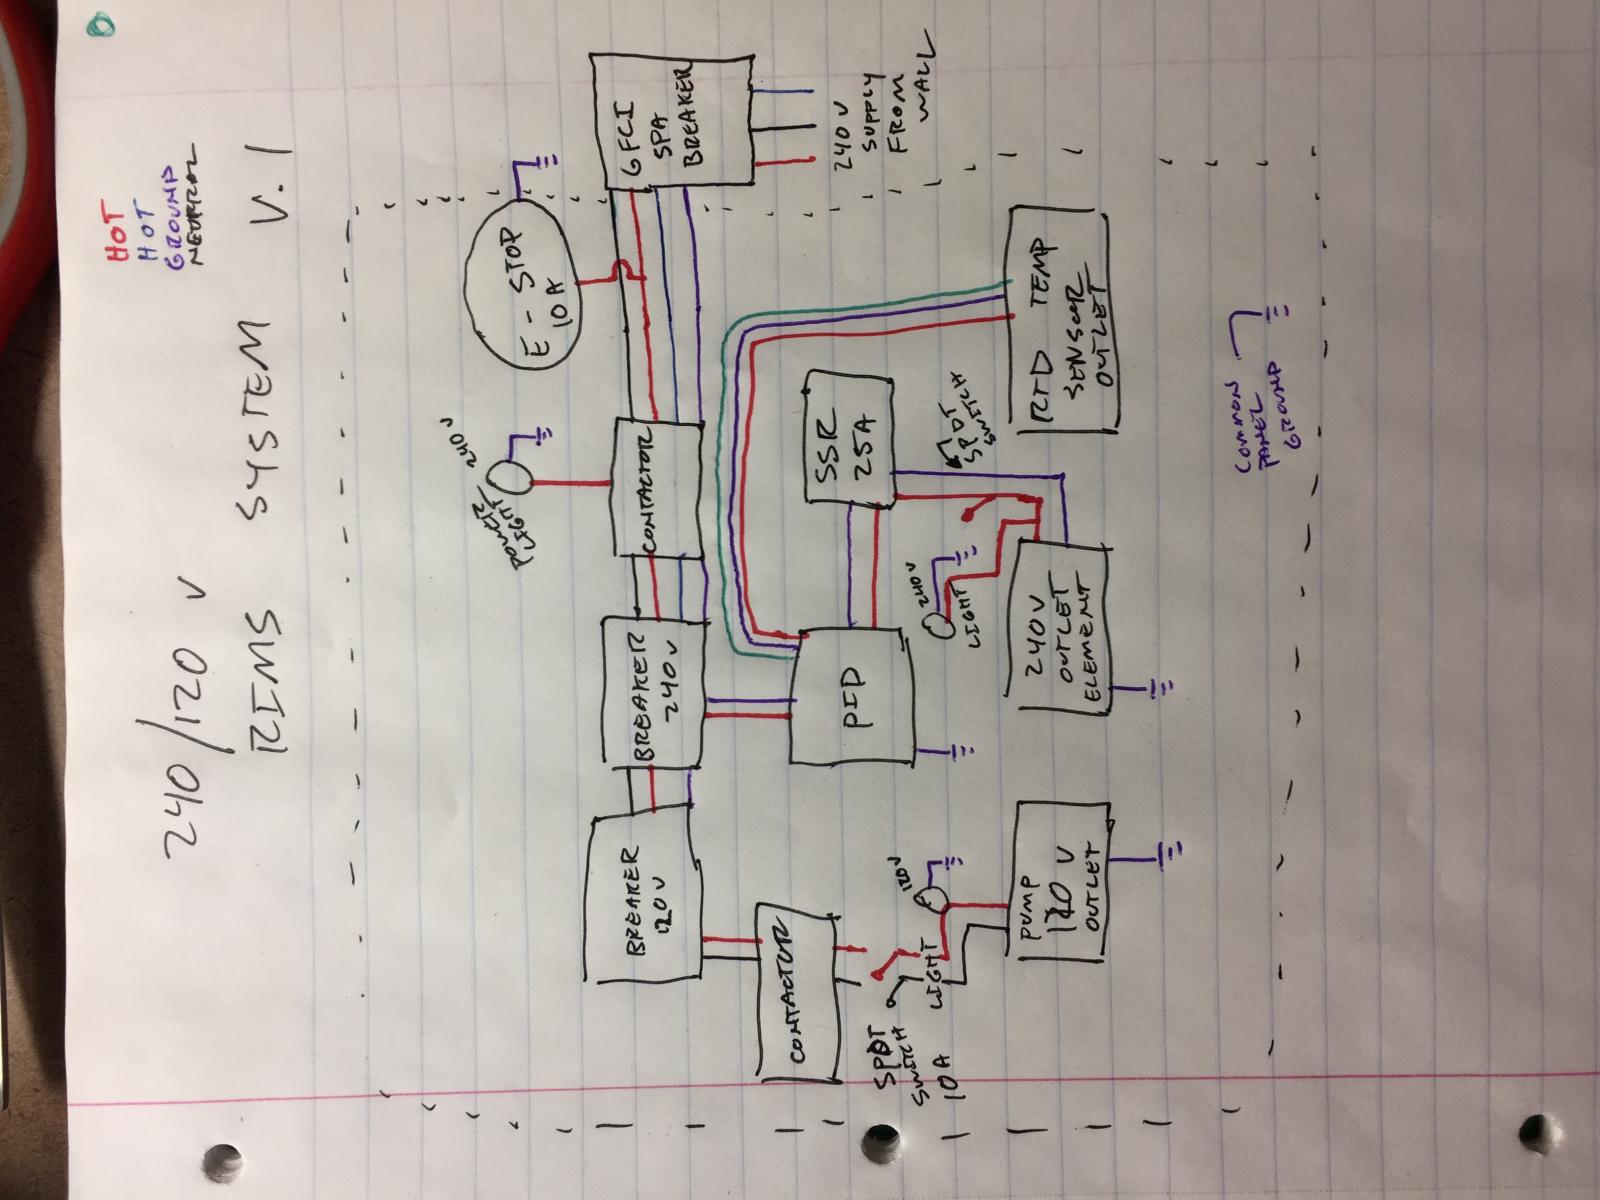 240/120 V
RIMS SYSTEM V.1
HOT
HOT
GROUND
NEUTRAL
E-STOP
10A
GFCI
SPA
BREAKER
240V
SUPPLY
FROM
WALL
240V
POWER
LIGHT
CONTACTOR
BREAKER
240V
BREAKER
120V
CONTACTOR
SPDT
SWITCH
10A
LIGHT
120V
PUMP
120 V
OUTLET
PID
SSR
25A
SPDT
SWITCH
240V
LIGHT
240V
OUTLET
ELEMENT
RTD TEMP
SENSOR
OUTLET
COMMON
PANEL
GROUND